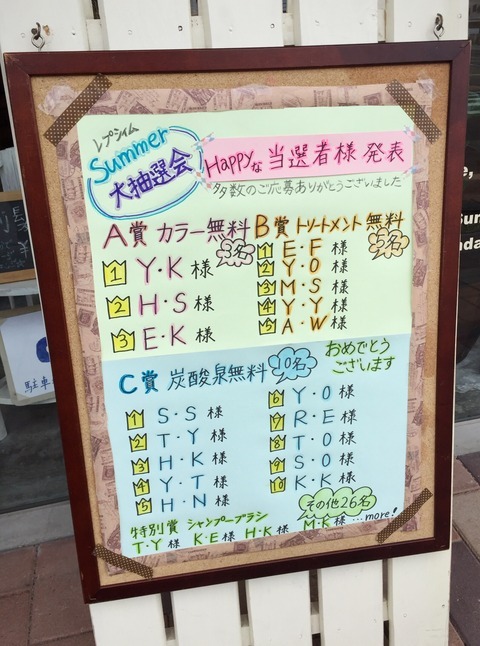 レプシィム
Summer
大抽選会
Happyな 当選者様 発表
多数のご応募ありがとうございました
A賞 カラー無料 3名
1 Y・K 様
2 H・S 様
3 E・K 様
B賞 トリートメント 無料 5名
1 E・F 様
2 Y・O 様
3 M・S 様
4 Y・Y 様
5 A・W 様
C賞 炭酸泉無料 10名
おめでとう
ございます
1 S・S 様
2 T・Y 様
3 H・K 様
4 Y・T 様
5 H・N 様
6 Y・O 様
7 R・E 様
8 T・O 様
9 S・O 様
10 K・K 様
特別賞 シャンプーブラシ その他26名
T・Y 様 K・E 様 H・K 様 M・K 様 …more!
駐車